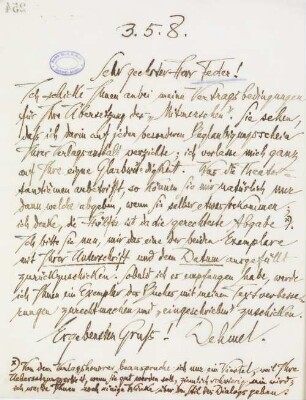 3.5.8.
Sehr geehrter Herr Feder!
Ich schicke Ihnen anbei meine Vertragsbedingungen
für Ihre Übersetzung des „Mitmenschen". Sie sehen,
daß ich darin auf jeden besonderen Beglaubigungsschein
Ihrer Verlagsanstalt verzichte; ich verlasse mich ganz
auf Ihre eigne Glaubwürdigkeit. Was die Theater-
tantièmen anbetrifft, so können Sie mir natürlich nur
dann welche abgeben, wenn Sie selber etwas bekommen;
ich denke, die Hälfte ist da die gerechteste Abgabe x).
Ich bitte Sie nun, mir das eine der beiden Exemplare
mit Ihrer Unterschrift und dem Datum ausgefüllt
zurückzuschicken. Sobald ich es empfangen habe, werde
ich Ihnen ein Exemplar des Buches mit meinen Textverbesse-
rungen zurechtmachen und „eingeschrieben" zuschicken.
Ergebensten Gruß! Dehmel.
x) Von dem Verlagshonorar beanspruche ich nur ein Viertel, weil Ihre
Uebersetzungsarbeit, wenn sie gut werden soll, ziemlich schwierig sein wird;
ich werde Ihnen noch einige Winke über den Stil des Dialogs geben.